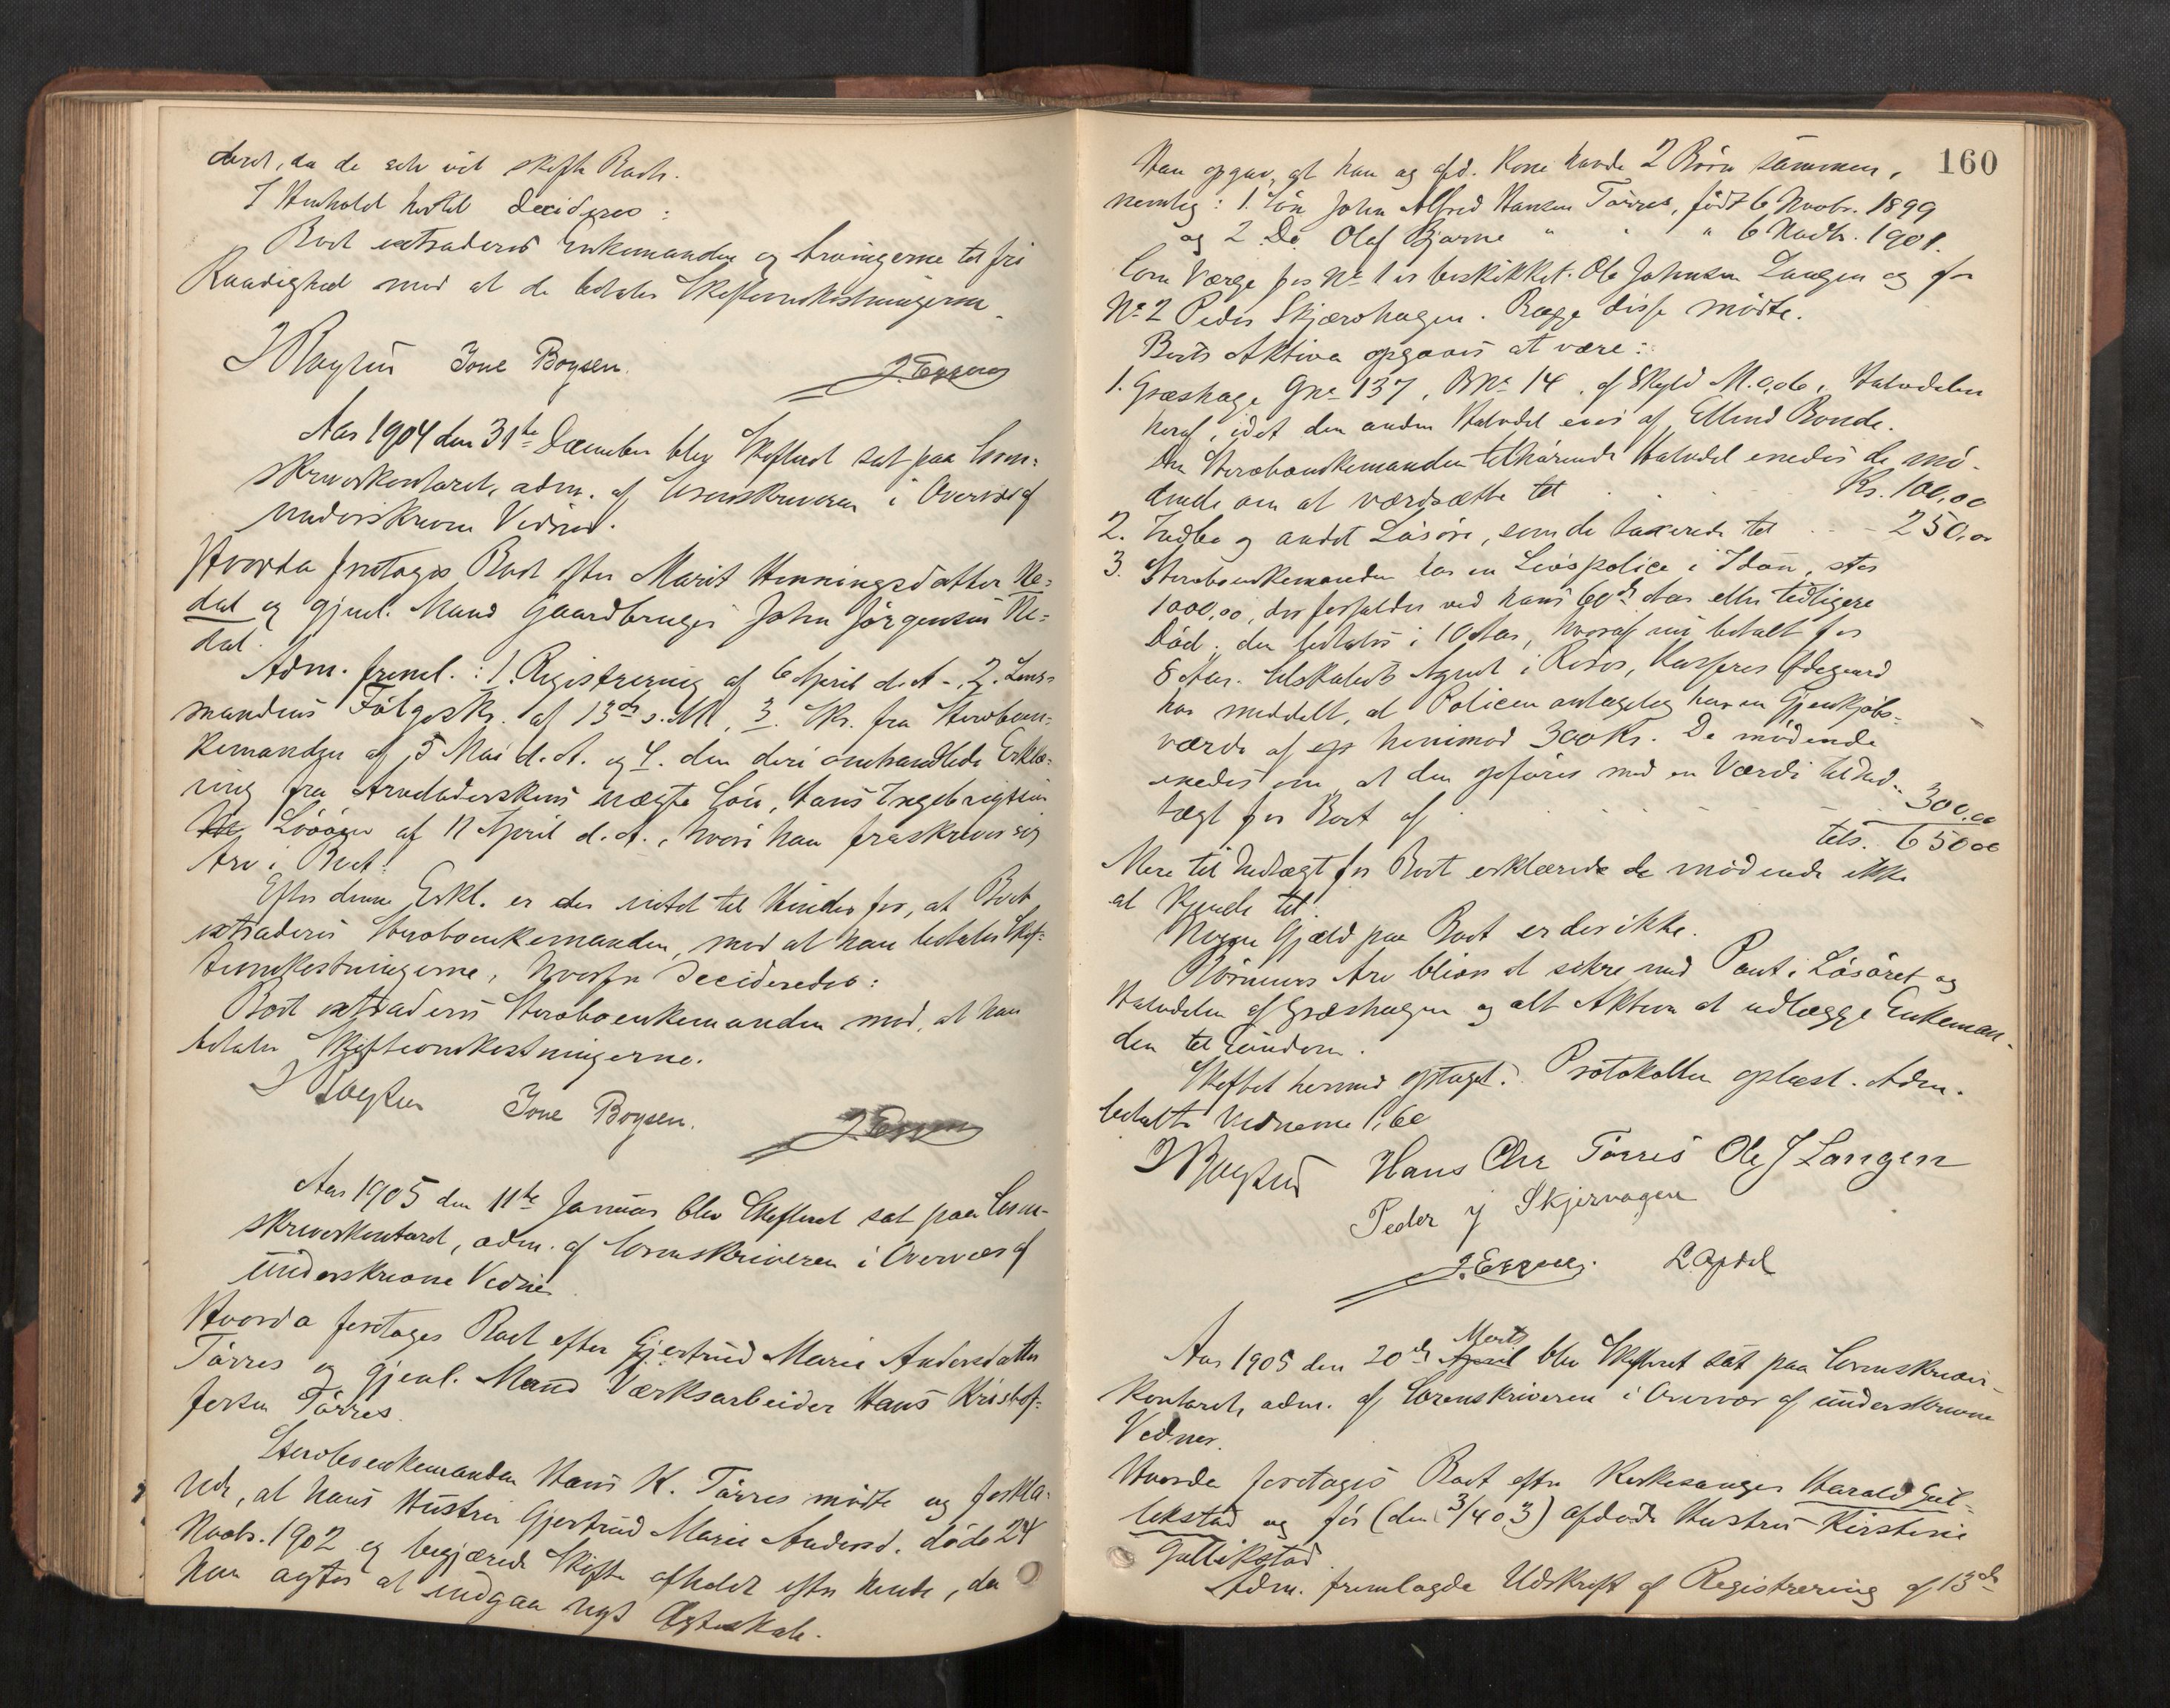 deret, da de selv vil skifte Boet.
I Henhold hertil decideres:
Boet extraderes Enkemanden og Arvingerne til fri
Raadighed mod at de betaler Skifteomkostningerne.
Ione Boysen.
Aar 1904 den 31te December blev Skifteret sat paa Soren-
skriverkontoret, adm. af Sorenskriveren i Overvær af
underskrevne Vidner.
Hvorda foretoges Boet efter Marit Henningsdatter Ne=
dal og gjenl. Mand Gaardbruger John Jörgensen Ne=
dal.
Adm. freml.: 1. Registrering af 6 April d. A., 2. Lens-
mandens Fölgeskr. af 13de s. M., 3. Skr. fra Stervboen-
kemanden af 5 Mai d. A. og 4. den deri omhandlede Erklæ-
ring fra Arveladerskens uægte Sön, Hans Ingebrigtsen
af 11 April d. A., hvori han fraskriver sig
Arv i Boet.
Efter denne Erkl. er der intet til Hinder for, at Boet
extraderes Stervboenkemanden, mod at han betaler Skif-
teomkostningerne, hvorfor decideredes:
Boet extraderes Stervboenkemanden mod, at han
betaler Skifteomkostningerne.
Ione Boysen.
Aar 1905 den 11te Januar blev Skifteret sat paa Soren-
skriverkontoret, adm. af Sorenskriveren i Overvær af
underskrevne Vidner
Hvorda foretoges Boet efter Gjertrud Marie Andersdatter
Törres og gjenl. Mand Værksarbeider Hans Kristof-
fersen Törres.
Stervboenkemanden Hans K. Törres mödte og forkla-
rede, at hans Hustru Gjertrud Marie Andersd. döde 24
Novbr. 1902 og begjærede Skifte afholdt efter hende, da
han agter at indgaa nyt Ægteskab.
160
Han opgav, at han og afd. Kone havde 2 Börn sammen,
nemlig: 1. Sön John Alfred Hansen Törres, födt 6 Novbr. 1899
og 2. Do. Olaf Bjarne " " " 6 Novbr. 1901.
Som Værge for No 1 er beskikket Ole Johnsen Langen og for
No 2 Peder Skjærvhagen. Begge disse mödte.
Boets Aktiva opgaves at være:
1. Græshage Gno 137, Bno 14, af Skyld M. 0,06, Halvdelen
heraf, idet den anden Halvdel eies af Ellend Bonde.
Den Stervboenkemanden tilhörende Halvdel enedes de mö-
dende om at værdsætte til Kr. 100,00
2. Indbo og andet Lösöre, som de taxerede til - 250,00
3. Stervboenkemanden har en Livspolice i Idun, stor
1000,00, der forfalder ved hans 60de Aar eller tidligere
Död; den betales i 10 Aar, hvoraf nu betalt for
8 Aar. Selskabets Agent i Röros, Kasserer Ödegaard
har meddelt, at Policen antagelig har en Gjenkjöbs-
værdi af henimod 300 Kr. De mödende
enedes om, at den opföres med en Værdi til Ind-
tægt for Boet af 300,00
tils. 650,00
Mere til Indtægt for Boet erklærede de mödende ikke
at kjende til.
Nogen Gjæld paa Boet er der ikke.
Börnenes Arv bliver at sikre med Pant i Lösöret og
Halvdelen af Græshagen og alt Aktiva at udlægge Enkeman-
den til Eiendom.
Skiftet hermed optaget. Protokollen oplæst. Adm.
betalte Vidnerne 1,60
Hans Chr Törres Ole J Langen
Peder J Skjervagen
Aar 1905 den 20de Marts blev Skifteret sat paa Sorenskriver-
kontoret, adm. af Sorenskriveren i Overvær af underskrevne
Vidner.
Hvorda foretoges Boet efter Kirkesanger Harald Gul-
likstad og för (den 3/4 03) afdöde Hustru Kirstine
Gullikstad.
Adm. fremlagde Udskrift af Registrering af 13de